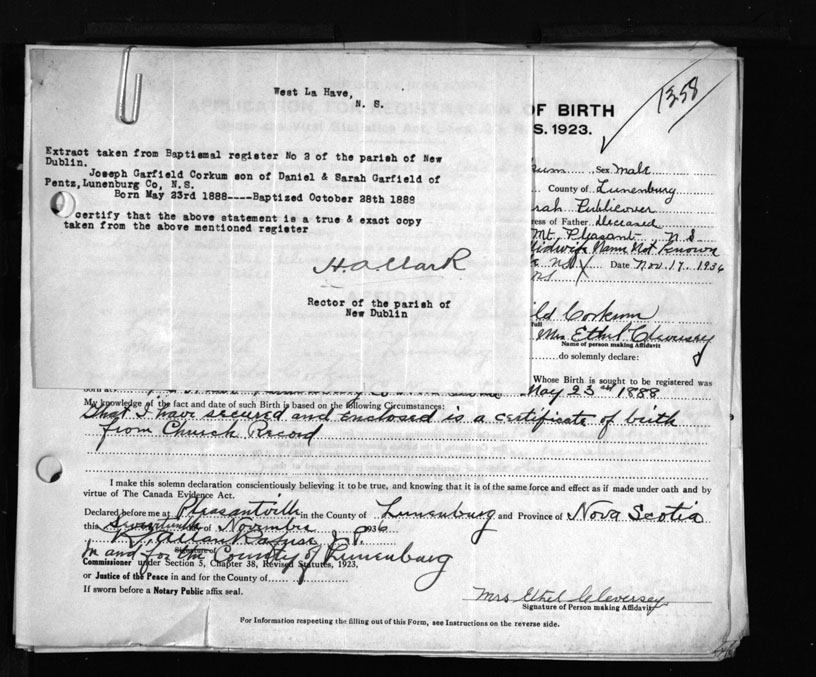 West La Have,
N. S.
Extract taken from Baptismal register No 2 of the parish of New
Dublin.
Joseph Garfield Corkum son of Daniel & Sarah Garfield of
Pentz,Lunenburg Co, N.S.
Born May 23rd 1888----Baptized October 28th 1888
certify that the above statement is a true & exact copy
taken from the above mentioned register
H.A. Clark
Rector of the parish of
New Dublin
1358
OF BIRTH
S. 1923.
Sex Male
County of Lunenburg
rah Publicover
ress of Father Deceased
Mt. Pleasant N S
Midwife Name Not Known
NS Date Nov. 17. 1936
NS
ld Corkum
Full
Mrs Ethel Cleversey
Name of person making Affidavit
do solemnly declare:
Whose Birth is sought to be registered was
born at May 23rd 1888
My knowledge of the fact and date of such Birth is based on the following Circumstances:
That I have secured and enclosed is a certificate of birth
from Church Record
I make this solemn declaration conscientiously believing it to be true, and knowing that it is of the same force and effect as if made under oath and by
virtue of The Canada Evidence Act.
Declared before me at Pleasantville in the County of Lunenburg and Province of Nova Scotia
this Seventeenth day of Novembre 1936
R. Allan Rafuse J. P.
Signature of
In and for the County of Lunenburg
Commissioner under Section 5, Chapter 38, Revised Statutes, 1923,
or Justice of the Peace in and for the County of
If sworn before a Notary Public affix seal.
Mrs Ethel Cleversey
Signature of Person making Affidavit
For Information respecting the filling out of this Form, see Instructions on the reverse side.